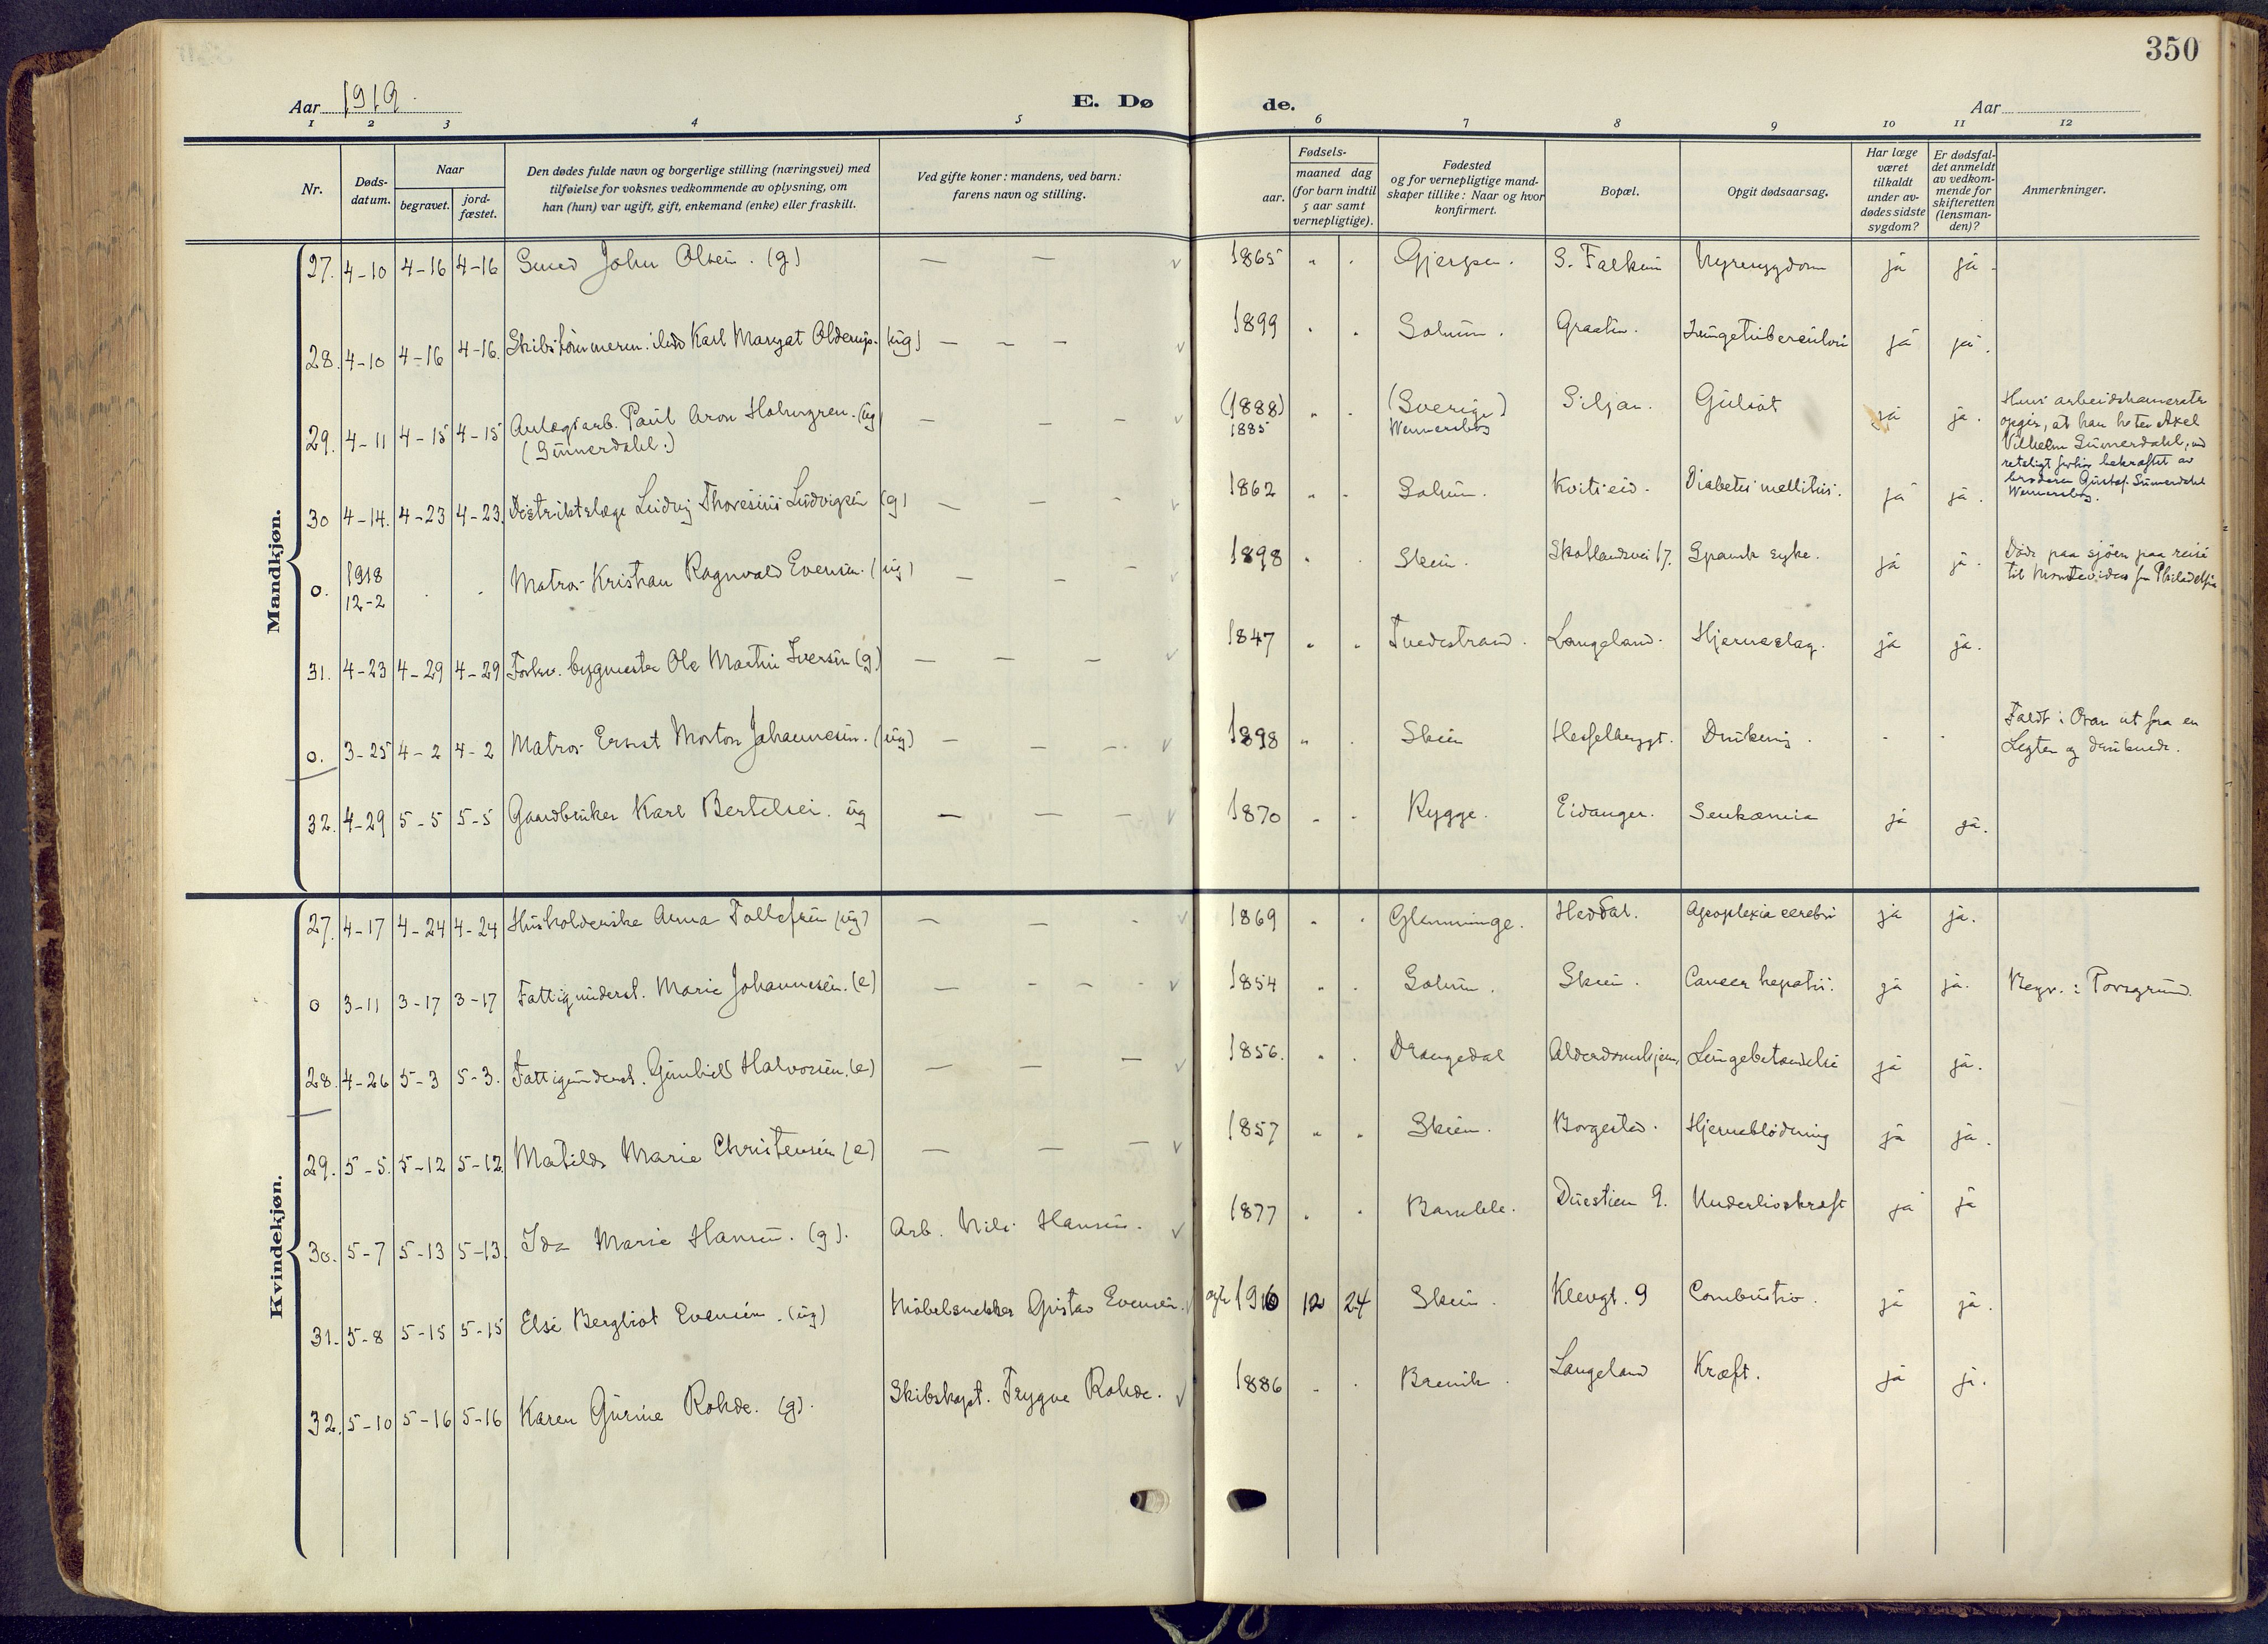 350
Aar 1919. E. Dø de. Aar
1 2 3 4 5 6 7 8 9 10 11 12
Nr.
Døds-
datum.
Naar
begravet.
jord-
fæstet.
Den dødes fulde navn og borgerlige stilling (næringsvei) med
tilføielse for voksnes vedkommende av oplysning, om
han (hun) var ugift, gift, enkemand (enke) eller fraskilt.
Ved gifte koner: mandens, ved barn:
farens navn og stilling.
Fødsels-
aar.
maaned dag
(for barn indtil
5 aar samt
vernepligtige).
Fødested
og for vernepligtige mand-
skaper tillike: Naar og hvor
konfirmert.
Bopæl.
Opgit dødsaarsag.
Har læge
været
tilkaldt
under av-
dødes sidste
sygdom?
Er dødsfal-
det anmeldt
av vedkom-
mende for
skifteretten
(lensman-
den)?
Anmerkninger.
Mandkjøn.
27. 4-10 4-16 4-16 Smed John Olsen. (g) — — 1865 " . Gjerpen. S. Falkum Nyresygdom ja ja.
28. 4-10 4-16 4-16. Karl Maryat Olderup. (ug) — – — 1899 . . Solum. Graaten. Lungetuberculose ja ja.
29. 4-11 4-15 4-15 Anlægsarb. Paul Aron Holmgren. (ug)
(Sunnerdahl.) — — — (1888)
1885 " . (Sverige)
Wennersborg Siljan. Gulsot ja ja. Hans arbeidskamerater
opgir, at han heter Axel
Vilhelm Sunnerdahl,
bekræftet av
broderen Gustaf Sunnerdahl
Wennersborg.
30 4-14. 4-23 4-23. Distriktslæge Ludvig Thoresius Ludvigsen (g) — — - 1862 " . Solum. Kvitseid. Diabetes mellitus. ja ja.
o. 1918
12-2 . . Matros Kristian Ragnvald Evensen. (ug) — — - 1898 " . Skien. Skotlandsvei 17. Spansk syke. ja ja. Døde paa sjøen paa reise
til Montevideo fra Philadelphia
31. 4-23 4-29 4-29 Forhv. bygmester Ole Martin Iversen (g) — — — 1847 " " Tvedestrand. Langeland. Hjerneslag. ja ja.
o. 3-25 4-2 4-2 Matros Ernst Morton Johannesen. (ug) — — — 1898 " . Skien Hesselberggt. Drukning. . . Faldt i Oran ut fra en
Legter og druknede.
32. 4-29 5-5 5-5 Gaardbruker Karl Bertelsen. ug — — — 1870 " . Rygge. Eidanger. Leukæmia ja ja.
Kvindekjøn.
27. 4-17 4-24 4-24 Husholderske Anna Tollefsen (ug) — — - 1869 . . Glemminge. Heddal. Apoplexia cerebri ja ja.
o 3-11 3-17 3-17 Fattigunderst. Marie Johannesen. (e) — - - - 1854 " . Solum. Skien. Cancer hepatis. ja ja. Begr. i Porsgrund.
28. 4-26 5-3 5-3. Fattigunderst. Gunhild Halvorsen. (e) — — — 1856. " . Drangedal Alderdomshjem. Lungebetændelse ja ja.
29. 5-5. 5-12 5-12. Matilde Marie Christensen (e) — — — 1857 " . Skien. Borgestad. Hjerneblödning ja ja.
30. 5-7 5-13 5-13. Ida Marie Hansen. (g). Arb. Nils Hansen. 1877 . . Bamble. Duestien 9. Underlivskræft ja ja
31. 5-8 5-15 5-15 Else Bergliot Evensen. (ug) Möbelsnekker Gustav Evensen. 1916 12 24 Skien. Klevgt. 9 Combustio. ja ja.
32. 5-10 5-16 5-16 Karen Gurine Rohde. (g). Skibskapt. Trygve Rohde. 1886 . . Brevik. Langeland Kræft. ja ja.